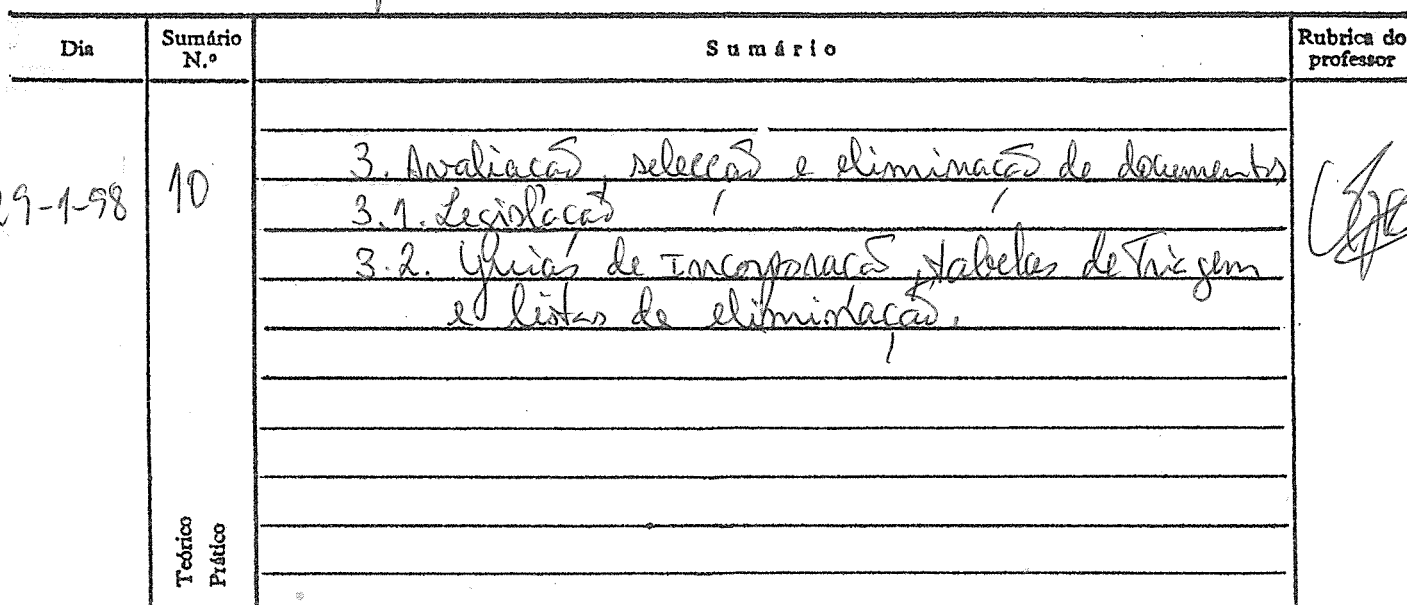 Dia
Sumário N.º
Sumário
Rubrica do professor
29-1-98
10
3. Avaliação, selecção e eliminação de documentos
3.1. Legislação
3.2. Guias de Incorporação, tabelas de Triagem
e listas de eliminação.
Teórico
Prático